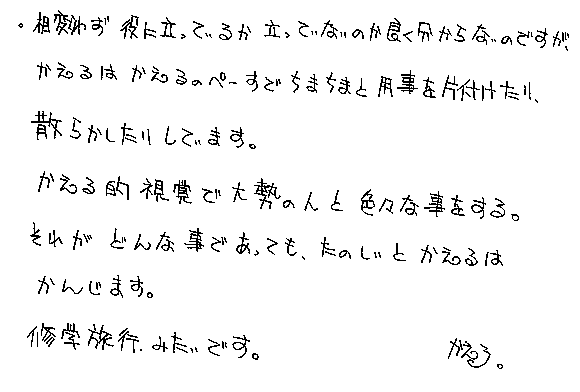 ・相変わず 役に立っているか 立っていないのか良く分からないのですが、
かえるは かえるのペーすで ちまちまと 用事を片付けたり、
散らかしたりしています。
かえる的 視覚で 大勢の人と 色々な事をする。
それが どんな事であっても、たのしいと かえるは
かんじます。
修学旅行みたいです。
かえる。